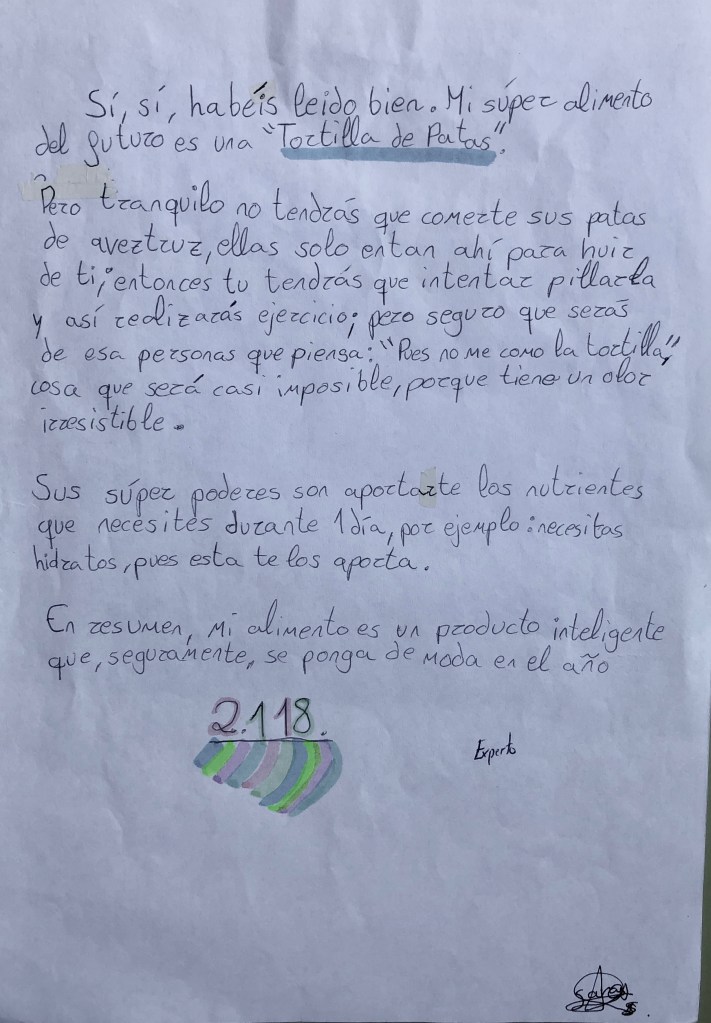 Sí, sí, habéis leido bien. Mi súper alimento
del futuro es una "Tortilla de Patas".
Pero tranquilo no tendrás que comerte sus patas
de avertruz, ellas solo entan ahí para huir
de ti, entonces tu tendrás que intentar pillarla
y así realizarás ejercicio; pero seguro que serás
de esa personas que piensa: "Pues no me como la tortilla",
cosa que será casi imposible, porque tiene un olor
irresistible.
Sus súper poderes son aportarte los nutrientes
que necesités durante 1 día, por ejemplo: necesitas
hidratos, pues esta te los aporta.
En resumen, mi alimento es un producto inteligente
que, seguramente, se ponga de moda en el año
2.118.
Experto